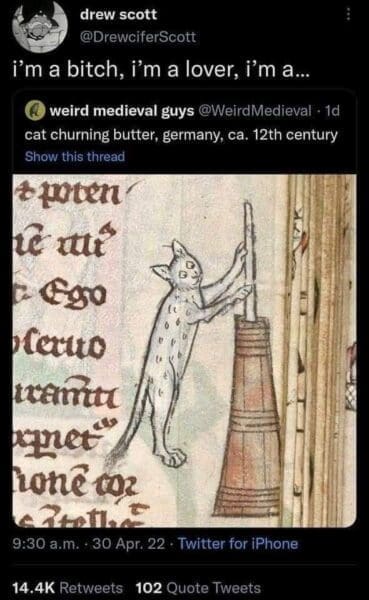 drew scott
@DrewciferScott
i'm a bitch, i'm a lover, i'm a...
weird medieval guys @WeirdMedieval · 1d
cat churning butter, germany, ca. 12th century
Show this thread
poten
Ego
9:30 a.m. · 30 Apr. 22 · Twitter for iPhone
14.4K Retweets 102 Quote Tweets